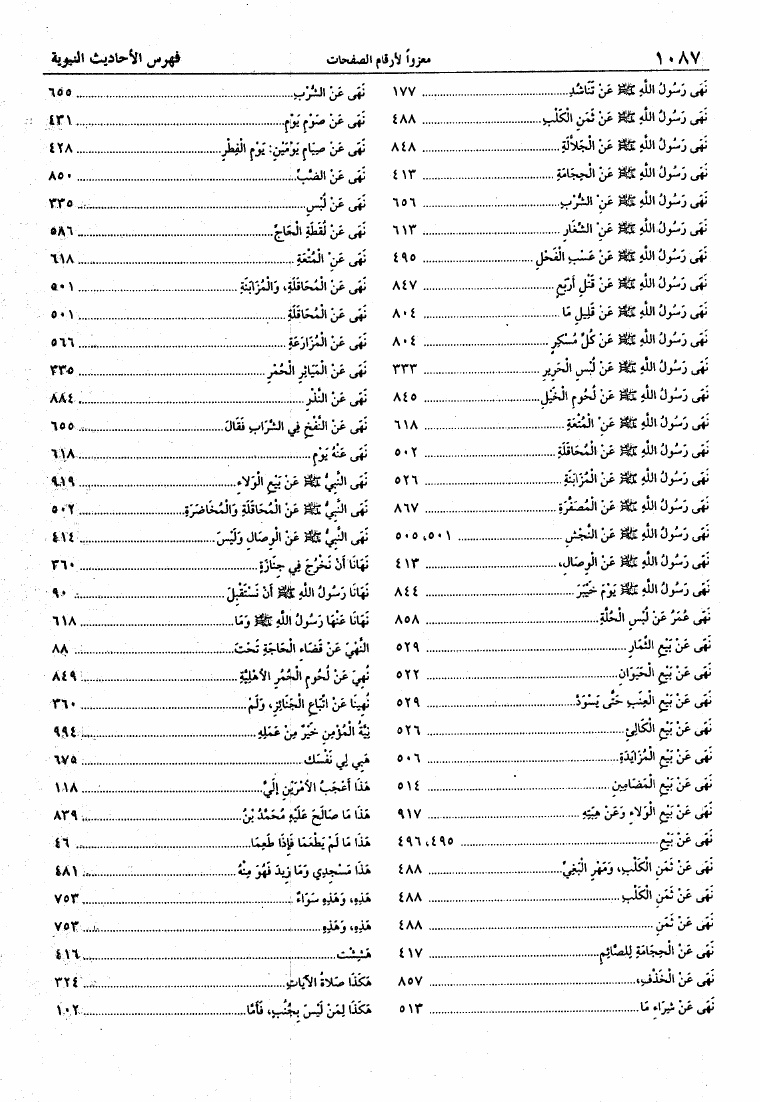 ١٠٨٧ معزواً لأرقام الصفحات فهرس الأحاديث النبوية
نَهَى رَسُولُ اللَّهِ ﷺ عَنْ تَنَاشُدِ ١٧٧
نَهَى رَسُولُ اللَّهِ ﷺ عَنْ ثَمَنِ الْكَلْبِ ٤٨٨
نَهَى رَسُولُ اللَّهِ ﷺ عَنْ الْجَلاَّلَةِ ٨٤٨
نَهَى رَسُولُ اللَّهِ ﷺ عَنْ الْحِجَامَةِ ٤١٣
نَهَى رَسُولُ اللَّهِ ﷺ عَنْ الشُّرْبِ ٦٥٦
نَهَى رَسُولُ اللَّهِ ﷺ عَنْ الشِّغَارِ ٦١٣
نَهَى رَسُولُ اللَّهِ ﷺ عَنْ عَسْبِ الْفَحْلِ ٤٩٥
نَهَى رَسُولُ اللَّهِ ﷺ عَنْ قَتْلِ أَرْبَعِ ٨٤٧
نَهَى رَسُولُ اللَّهِ ﷺ عَنْ قَلِيلِ مَا ٨٠٤
نَهَى رَسُولُ اللَّهِ ﷺ عَنْ كُلِّ مُسْكِرٍ ٨٠٤
نَهَى رَسُولُ اللَّهِ ﷺ عَنْ لُبْسِ الْحَرِيرِ ٣٣٣
نَهَى رَسُولُ اللَّهِ ﷺ عَنْ لُحُومِ الْخَيْلِ ٨٤٥
نَهَى رَسُولُ اللَّهِ ﷺ عَنْ الْمُتْعَةِ ٦١٨
نَهَى رَسُولُ اللَّهِ ﷺ عَنْ الْمُحَاقَلَةِ ٥٠٢
نَهَى رَسُولُ اللَّهِ ﷺ عَنْ الْمُزَابَنَةِ ٥٢٦
نَهَى رَسُولُ اللَّهِ ﷺ عَنْ الْمُصَفَّرَةِ ٨٦٧
نَهَى رَسُولُ اللَّهِ ﷺ عَنْ النَّجْشِ ٥٠١، ٥٠٥
نَهَى رَسُولُ اللَّهِ ﷺ عَنْ الْوِصَالِ، ٤١٣
نَهَى رَسُولُ اللَّهِ ﷺ يَوْمَ خَيْبَرَ ٨٤٤
نَهَى عُمَرُ عَنْ لُبْسِ الْحُلَّةِ ٨٥٨
نَهَى عَنْ بَيْعِ الثِّمَارِ ٥٢٩
نَهَى عَنْ بَيْعِ الْحَيَوَانِ ٥٢٢
نَهَى عَنْ بَيْعِ الْعِنَبِ حَتَّى يَسْوَدَّ ٥٢٩
نَهَى عَنْ بَيْعِ الْكَالِئِ ٥٢٦
نَهَى عَنْ بَيْعِ الْمُزَايَدَةِ ٥٠٦
نَهَى عَنْ بَيْعِ الْمَضَامِينِ ٥١٤
نَهَى عَنْ بَيْعِ الْوَلاَءِ وَعَنْ هِبَتِهِ ٩١٧
نَهَى عَنْ بَيْعِ ٤٩٥، ٤٩٦
نَهَى عَنْ ثَمَنِ الْكَلْبِ، وَمَهْرِ الْبَغِيِّ ٤٨٨
نَهَى عَنْ ثَمَنِ الْكَلْبِ ٤٨٨
نَهَى عَنْ ثَمَنِ ٤٨٨
نَهَى عَنْ الْحِجَامَةِ لِلصَّائِمِ ٤١٧
نَهَى عَنْ الْخَذْفِ، ٨٥٧
نَهَى عَنْ شِرَاءِ مَا ٥١٣
نَهَى عَنْ الشُّرْبِ ٦٥٥
نَهَى عَنْ صَوْمِ يَوْمِ ٤٣١
نَهَى عَنْ صِيَامِ يَوْمَيْنِ: يَوْمِ الْفِطْرِ ٤٢٨
نَهَى عَنْ الضَّبِّ ٨٥٠
نَهَى عَنْ لُبْسِ ٣٣٥
نَهَى عَنْ لُقَطَةِ الْحَاجِّ ٥٨٦
نَهَى عَنْ الْمُتْعَةِ ٦١٨
نَهَى عَنْ الْمُحَاقَلَةِ، وَالْمُزَابَنَةِ ٥٠١
نَهَى عَنْ الْمُحَاقَلَةِ ٥٠١
نَهَى عَنْ الْمُزَارَعَةِ ٥٦٦
نَهَى عَنْ الْمَيَاثِرِ الْحُمْرِ ٣٣٥
نَهَى عَنْ النَّذْرِ ٨٨٤
نَهَى عَنْ النَّفْخِ فِي الشَّرَابِ فَقَالَ ٦٥٥
نَهَى عَنْهُ يَوْمَ ٦١٨
نَهَى النَّبِيُّ ﷺ عَنْ بَيْعِ الْوَلاَءِ ٩١٩
نَهَى النَّبِيُّ ﷺ عَنْ الْمُحَاقَلَةِ وَالْمُخَاضَرَةِ ٥٠٢
نَهَى النَّبِيُّ ﷺ عَنْ الْوِصَالِ وَلَيْسَ ٤١٤
نَهَانَا أَنْ نَخْرُجَ فِي جِنَازَةٍ ٣٦٠
نَهَانَا رَسُولُ اللَّهِ ﷺ أَنْ نَسْتَقْبِلَ ٩٠
نَهَانَا عَنْهَا رَسُولُ اللَّهِ ﷺ وَمَا ٦١٨
النَّهْيَ عَنْ قَضَاءِ الْحَاجَةِ تَحْتَ ٨٨
نُهِيَ عَنْ لُحُومِ الْحُمُرِ الأَهْلِيَّةِ ٨٤٩
نُهِينَا عَنْ اتِّبَاعِ الْجَنَائِزِ، وَلَمْ ٣٦٠
نِيَّةُ الْمُؤْمِنِ خَيْرٌ مِنْ عَمَلِهِ ٩٩٤
هَبِي لِي نَفْسَكِ ٦٧٥
هَذَا أَعْجَبُ الأَمْرَيْنِ إِلَيَّ ١١٨
هَذَا مَا صَالَحَ عَلَيْهِ مُحَمَّدُ بْنُ ٨٣٩
هَذَا مَا لَمْ يَطْعَمَا فَإِذَا طَعِمَا ٤٦
هَذَا مَسْجِدِي وَمَا زِيدَ فَهُوَ مِنْهُ ٤٨١
هَذِهِ، وَهَذِهِ سَوَاءٌ ٧٥٣
هَذِهِ، وَهَذِهِ ٧٥٣
هَشِشْتُ ٤١٦
هَكَذَا صَلاَةُ الآيَاتِ ٣٢٤
هَكَذَا لِمَنْ لَيْسَ بِجُنُبٍ، فَأَمَّا ١٠٢